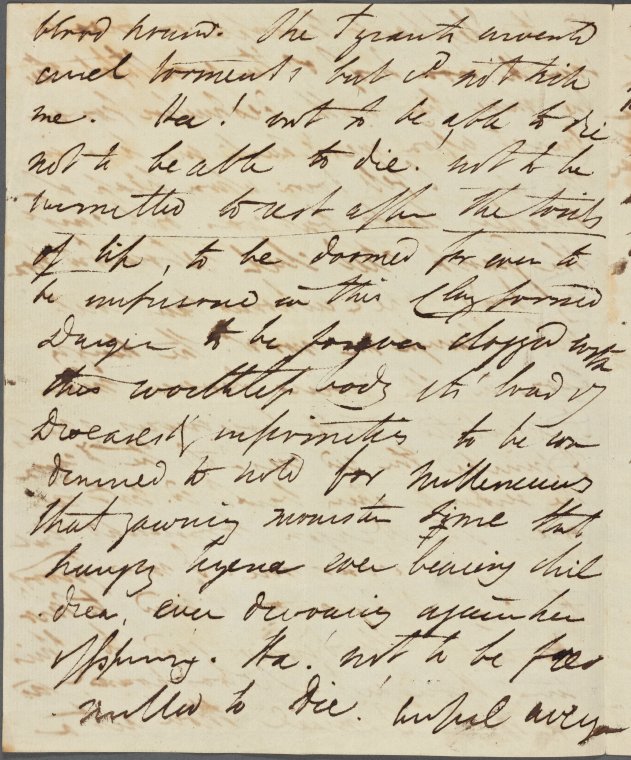 blood hound. The Tyrants invented
cruel torments but cd not kill
me. Ha! not to be able to die
not to be able to die. not to be
permitted to rest after the toils
of life, to be doomed for ever to
be imprisoned in this Clay formed
Dungeon to be forever clogged with
this worthless body its' load of
Diseases & infirmities to be con
demned to hold for Millenniums
that yawning monster Time that
hungry hyena ever bearing chil
dren, ever devouring again her
offspring. Ha! not to be per
mitted to Die! awful aveng